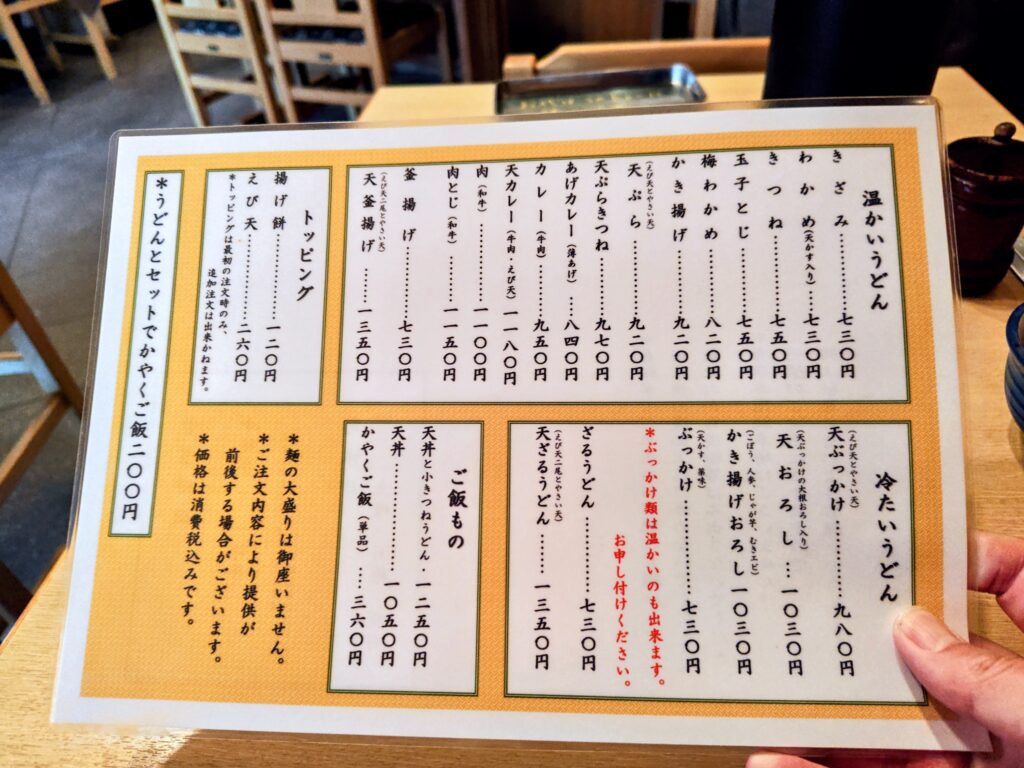 温かいうどん
きざみ…………七三〇円
わかめ(天かす入り)……七三〇円
きつね…………七五〇円
玉子とじ…………七五〇円
梅わかめ…………八二〇円
かき揚げ…………九二〇円
(えび天とやさい天)
天ぷら…………九二〇円
天ぷらきつね…………九七〇円
あげカレー(薄あげ)……八四〇円
カレー(牛肉)…………九五〇円
天カレー(牛肉・えび天)一一八〇円
肉(和牛)…………一一〇〇円
肉とじ(和牛)…………一一五〇円
釜揚げ…………七三〇円
(えび天二尾とやさい天)
天釜揚げ……一三五〇円
トッピング
揚げ餅…………一二〇円
えび天…………二六〇円
*トッピングは最初の注文時のみ、
追加注文は出来かねます。
*うどんとセットでかやくご飯二〇〇円
冷たいうどん
(えび天とやさい天)
天ぶっかけ…………九八〇円
(天ぶっかけの大根おろし入り)
天おろし…一〇三〇円
(ごぼう、人参、じゃが芋、むきエビ)
かき揚げおろし一〇三〇円
(天かす、薬味)
ぶっかけ…………七三〇円
*ぶっかけ類は温かいのも出来ます。
お申し付けください。
ざるうどん…………七三〇円
(えび天二尾とやさい天)
天ざるうどん……一三五〇円
ご飯もの
天丼と小きつねうどん・一二五〇円
天丼…………一〇五〇円
かやくご飯(単品)……三六〇円
*麺の大盛りは御座いません。
*ご注文内容により提供が
前後する場合がございます。
*価格は消費税込みです。